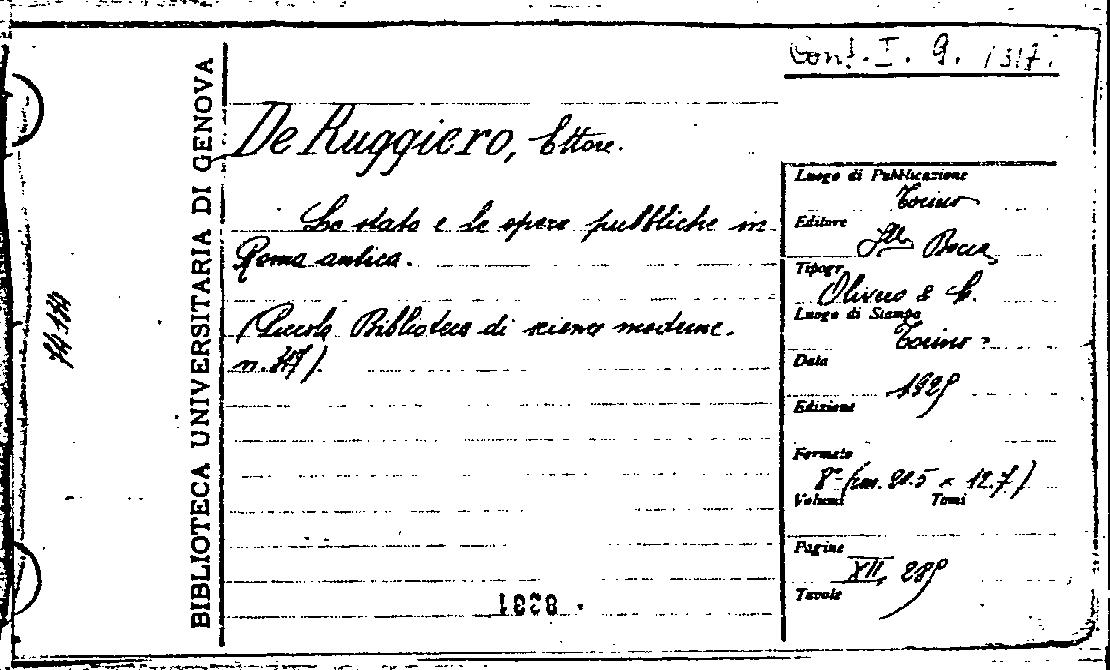 Conf. I. 9. 1317.
BIBLIOTECA UNIVERSITARIA DI GENOVA
De Ruggiero, Ettore.
Lo stato e le opere pubbliche in
Roma antica.
(Piccola Biblioteca di scienze moderne.
n.
Luogo di Pubblicazione
Torino
Editore
F.lli Bocca
Tipogr.
Olivero & C.
Luogo di Stampa
Torino
Data
1925
Edizione
Formato
8° (cm. 20.5 × 12.7)
Volumi Tomi
Pagine
XII, 289
Tavole